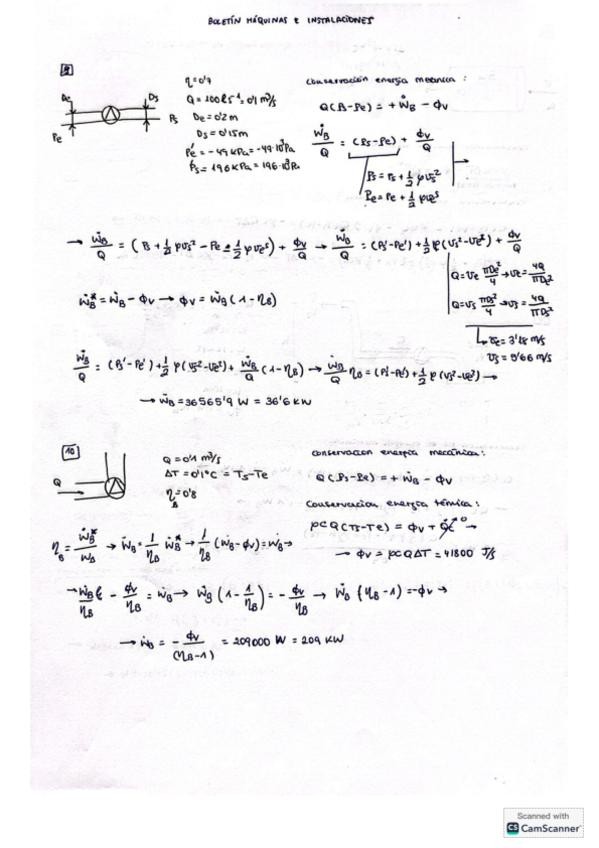 BOLETÍN MÁQUINAS E INSTALACIONES
9
η=0'7
Q = 100 l s⁻¹ = 0'1 m³/s
De = 0'2 m
Ds = 0'15 m
Pe' = -49 kPa = -49·10³ Pa
Ps' = 196 kPa = 196·10³ Pa
De Ds
Pe Ps
conservación energía mecánica :
Q(Ps-Pe) = + ẆB - ϕv
ẆB/Q = (Ps-Pe) + ϕv/Q
Ps = Ps + 1/2 ρ vs²
Pe = Pe + 1/2 ρ ve²
→ ẆB/Q = (Ps + 1/2 ρvs² - Pe - 1/2 ρve²) + ϕv/Q → ẆB/Q = (Ps'-Pe') + 1/2 ρ(vs²-ve²) + ϕv/Q
Q = ve πDe²/4 → ve = 4Q/πDe²
Q = vs πDs²/4 → vs = 4Q/πDs²
ve = 3'18 m/s
vs = 5'66 m/s
ẆB* = ẆB - ϕv → ϕv = ẆB (1-ηB)
ẆB/Q = (Ps'-Pe') + 1/2 ρ(vs²-ve²) + ẆB/Q (1-ηB) → ẆB/Q ηB = (Ps'-Pe') + 1/2 ρ(vs²-ve²) →
→ ẆB = 36565'9 W = 36'6 kW
10
Q
Q = 0'1 m³/s
ΔT = 0'1°C = Ts-Te
ηB = 0'8
conservación energía mecánica:
Q(Ps-Pe) = + ẆB - ϕv
Conservación energía térmica:
ρcQ(Ts-Te) = ϕv + 0 →
→ ϕv = ρcQΔT = 41800 J/s
ηB = ẆB*/ẆB → ẆB = 1/ηB ẆB* → 1/ηB (ẆB-ϕv) = ẆB →
→ ẆB/ηB - ϕv/ηB = ẆB → ẆB (1 - 1/ηB) = - ϕv/ηB → ẆB (ηB-1) = -ϕv →
→ ẆB = - ϕv/(ηB-1) = 209000 W = 209 kW
Scanned with
CS CamScanner